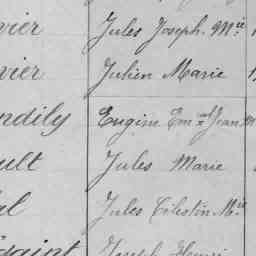 vier Jules Joseph. M^ie
vier Julien Marie
ndily Eugène Em^el Jean
ult Jules Marie
al Jules Célestin M^ie
Joseph Henri